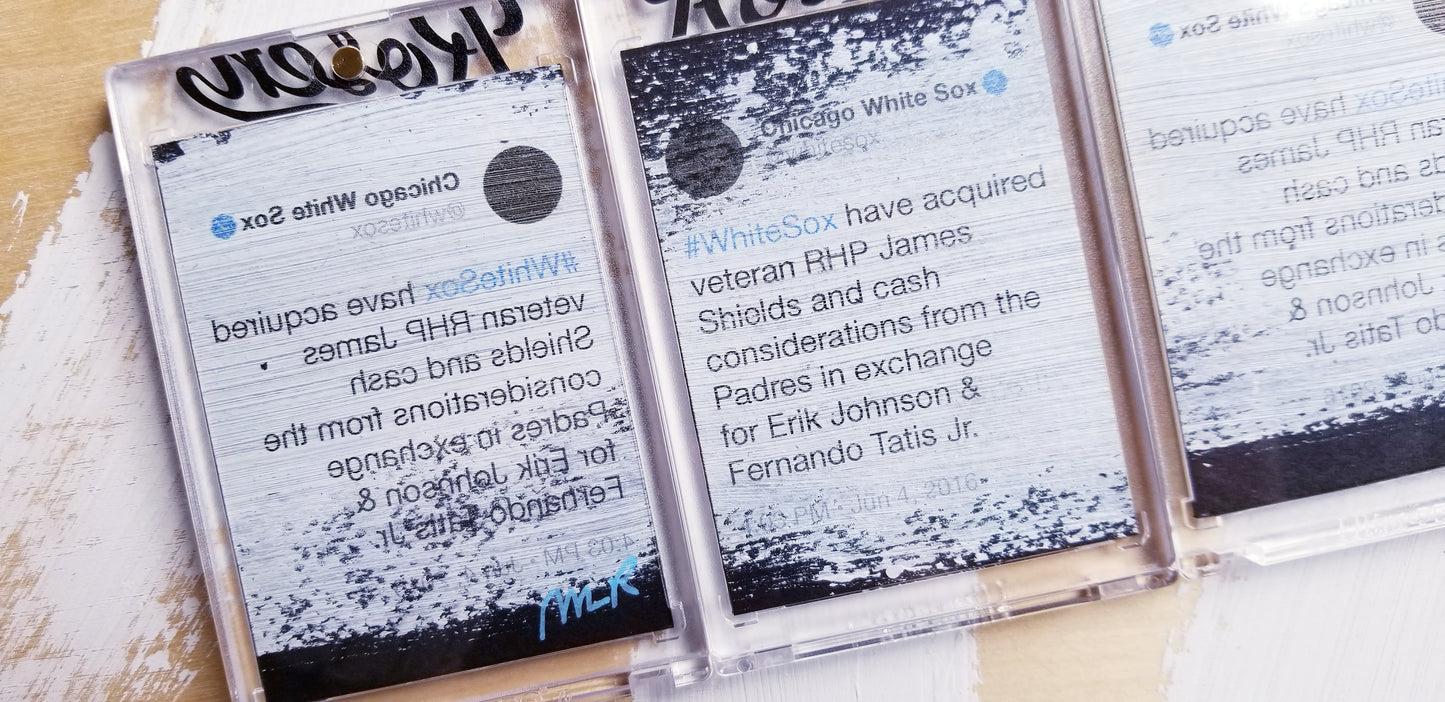 Chicago White Sox
@whitesox
#WhiteSox have acquired
veteran RHP James
Shields and cash
considerations from the
Padres in exchange
for Erik Johnson &
Fernando Tatis Jr.
4:03 PM ·
MLR
Chicago White Sox
whitesox
#WhiteSox have acquired
veteran RHP James
Shields and cash
considerations from the
Padres in exchange
for Erik Johnson &
Fernando Tatis Jr.
PM · Jun 4, 2016
Chicago White Sox
@whitesox
have acquired
RHP James
and cash
from the
in exchange
Johnson &
Tatis Jr.